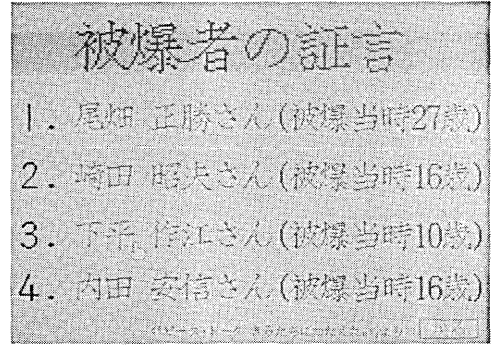 被爆者の証言
1. 尾畑 正勝さん(被爆当時27歳)
2. 崎田 昭夫さん(被爆当時16歳)
3. 下平 作江さん(被爆当時10歳)
4. 内田 安信さん(被爆当時16歳)